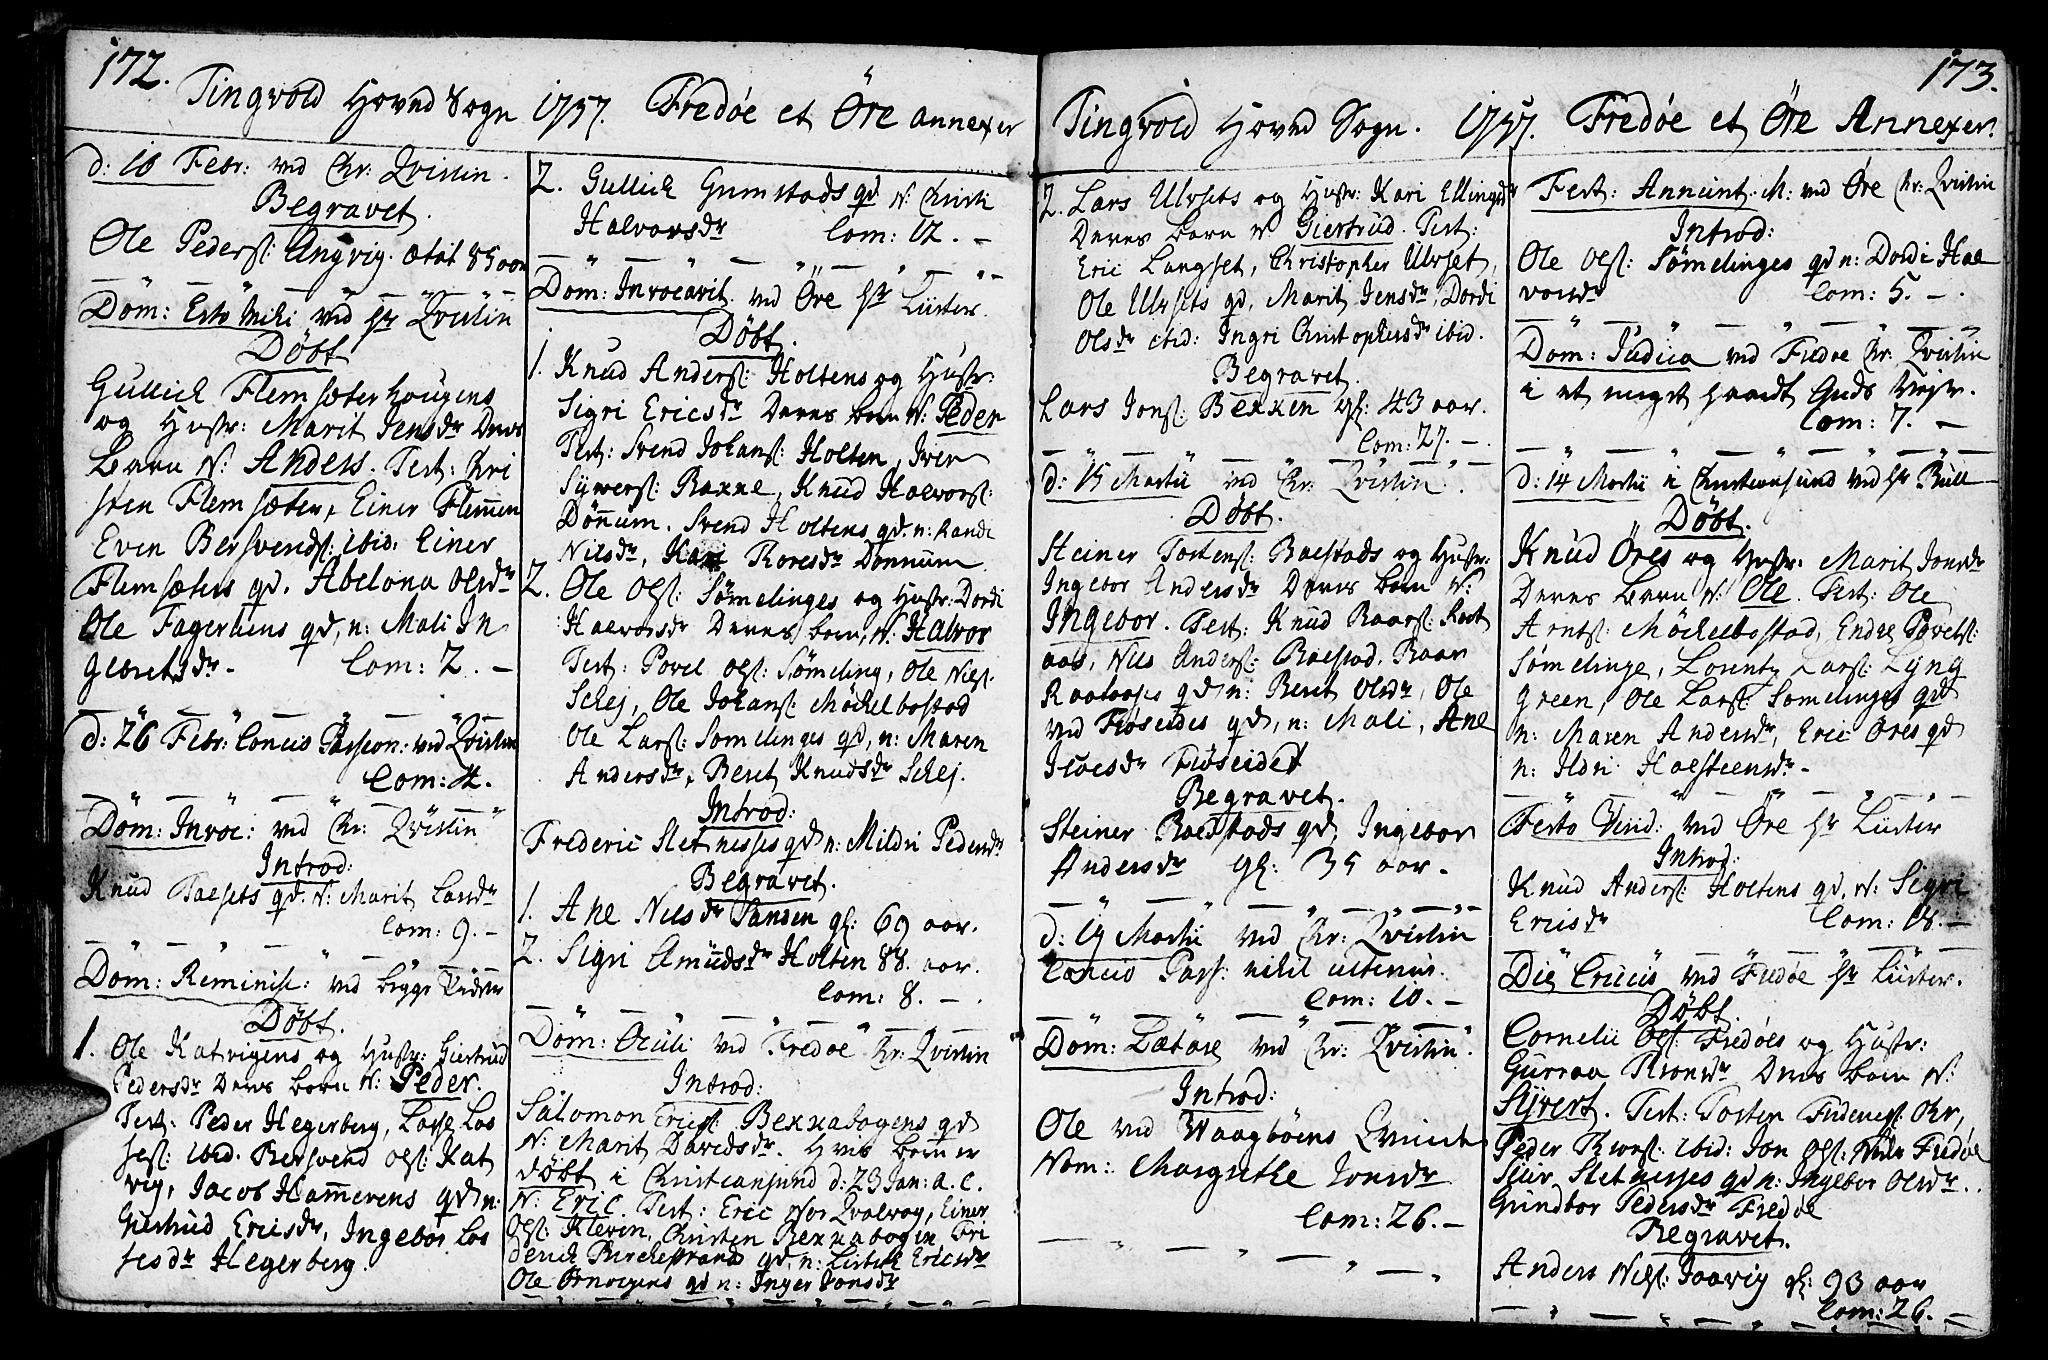 172.
Tingvold Hoved Sogn 1757. Fredøe et Öre annexer
d: 10 Febr: ved Chr: Qvistin.
Begravet.
Ole Peders: Angvig. ætat 85 aar
Dom: Esto Mihi ved hr Qvistin
Döbt
Gullich Flemsæterhougens
og Hustr: Marit Jensdr Deres
Barn N: Anders. Test: Kri
sten Flemsæter, Einer Flemen
Even Bersvends: ibid: Einer
Flemsæters qd. Abelona Olsdr
Ole Fagerliens qd, n: Mali In
gebretsdr. Com: 2. –
d: 26 Febr: Concio Passion: ved Qvistin
Com: 4.
Dom: Invoc: ved Chr: Qvistin
Introd:
Knud Talsets qd. N: Marit Larsdr
Com: 9. –
Dom: Reminisc: ved begge Præster
Döbt.
1. Ole Katvigens og Hustr: Giertrud
Pedersdr Deres barn N: Peder.
Test: Peder Hegerberg, Lasse Los
ses: ibid. Bersvend Ols: Kat
vig, Jacob Hammerens qd n:
Giertrud Ericsdr, Ingebor Los
sesdr Hegerberg.
2. Gullich Gumstads qd N: Christi
Halvorsdr Com: 12. –
Dom: Invocavit. ved Öre hr Lüster.
Döbt.
1. Knud Anders: Holtens og Hustr:
Sigri Ericsdr Deres barn N: Peder
Test: Svend Johans: Holten, Iver
Syvers: Raxne, Knud Halvors:
Dönnum. Svend Holtens qd. n: Randi
Nilsdr, Kari Roresdr Dönnum.
2. Ole Ols: Sömelinges og Hustr: Dordi
Halvorsdr Deres barn, N: Halvor
Test: Povel Ols: Sömeling, Ole Niels:
Schej, Ole Johans: Möchelbostad
Ole Lars: Sömelinges qd, n: Maren
Andersdr, Beret Knudsdr Schej.
Introd:
Frederic Sletnesses qd n: Mildri Pedersdr
Begravet.
1. Ane Nilsdr Sansen gl: 69 aar.
2. Sigri Amundsdr Holten 88. aar.
Com: 8. –
Dom: Oculi ved Fredøe Chr: Qvistin
Introd:
Salomon Erics: Bexxabogens qd
N: Marit Davidsdr. Hvis barn er
döbt i Christiansund d: 23 Jan: a. c.
N: Eric. Test: Eric Nor Qvalvog, Einer
Ols: Kleven, Christen Bexxabogen Fri
derich Bircherstrand qd. n: Lisbeth Ericsdr
Ole Ornvigens qd n: Inger Jonsdr
173.
Tingvold Hoved Sogn. 1757. Fredøe et Öre Annexer.
2. Lars Ulvsets og Hustr: Kari Ellingsdr
Deres barn N Giertrud. Test:
Eric Langset, Christopher Ulvset,
Ole Ulvsets qd, Marit Jensdr, Dordi
Olsdr ibid: Ingri Christophersdr ibid.
Begravet.
Lars Jons: Bexxen gl: 43 aar.
Com: 27. –
d: 15 Martii ved Chr: Qvistin
Döbt.
Steiner Tostens: Baestads og Hustr:
Ingebor Andersdr Deres barn N:
Ingebor. Test: Knud Roars: Rost
aas, Nils Anders: Baestad, Roar
Rostaases qd n: Beret Olsdr, Ole
ved Flöseides qd, n: Mali, Ane
Isacsdr Flöseidet
Begravet.
Steiner Baestads qd, Ingebor
Andersdr gl: 35 aar.
d: 19 Martii ved Chr: Qvistin
Concio Pass: nihil ulterius.
Com: 10. –
Dom: Lætare ved Chr: Qvistin.
Introd:
Ole ved Waagböens Qvinde
Nom: Margrethe Jonsdr
Com: 26. –
Fest: Annunt: M: ved Öre Chr: Qvistin
Introd:
Ole Ols: Sömelinges qd n: Dordi Hal
vorsdr Com: 5. –
Dom: Judica ved Fredøe Chr: Qvistin
i et meget haardt Guds Vejr.
Com: 7. –
d: 14 Martii i Christiansund ved hr Bull
Döbt.
Knud Öres og Hustr. Marit Jonsdr
Deres Barn N: Ole. Test: Ole
Arnts: Möchelbostad, Endre Povels:
Sömelinge, Lorentz Lars: Lyng
green, Ole Lars: Sömelinges qd
n: Maren Andersdr, Eric Öres qd
n: Ildri Halsteensdr.
Festo Virid: ved Öre hr Lüster
Introd:
Knud Anders: Holtens qd. N: Sigri
Ericsdr Com: 18. –
Die Crucis ved Fredøe hr Lüster.
Döbt.
Corneli Ols: Fredöes og Hustr:
Gurraa Thronsdr Deres barn N:
Syvert. Test: Tosten Fredenes: Ohr,
Peder Thrors: ibid: Jon Ols: Nedr Fredøe
Siur Sletnesses qd n: Ingebor Olsdr.
Gundbor Pedersdr Fredøe
Begravet.
Anders Nils: Jaavig gl: 93 aar
Com: 26. –